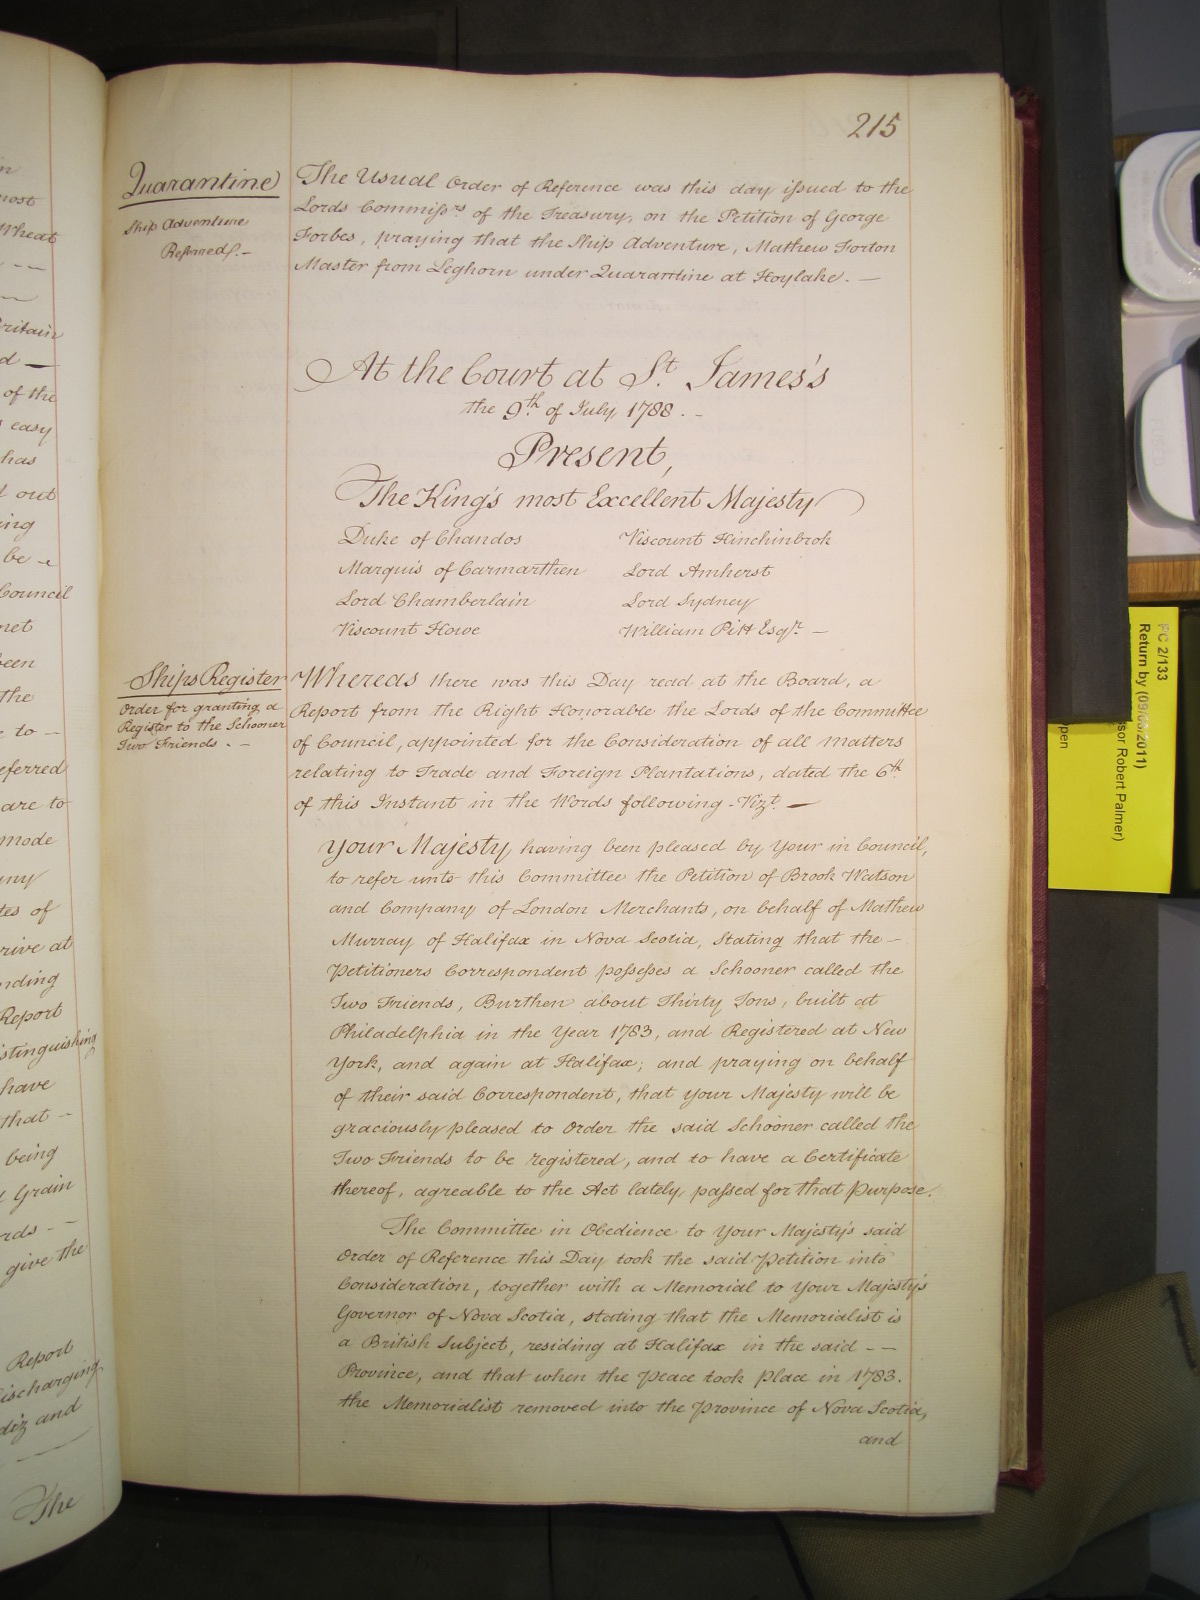 215
Quarantine
Ship Adventure
Referred.-
The Usual Order of Reference was this day issued to the
Lords Commissrs of the Treasury, on the Petition of George
Forbes, praying that the Ship Adventure, Mathew Forton
Master from Leghorn under Quarantine at Hoylake. —
At the Court at St. James's
the 9th of July 1788. -
Present,
The King's most Excellent Majesty
Duke of Chandos Viscount Hinchinbrok
Marquis of Carmarthen Lord Amherst
Lord Chamberlain Lord Sydney
Viscount Howe William Pitt Esqr. —
Ships Register
Order for granting a
Register to the Schooner
Two Friends. -
Whereas there was this Day read at the Board, a
Report from the Right Honorable the Lords of the Committee
of Council, appointed for the Consideration of all Matters
relating to Trade and Foreign Plantations, dated the 6th
of this Instant in the Words following - Vizt. —
Your Majesty having been pleased by Your in Council,
to refer unto this Committee the Petition of Brook Watson
and Company of London Merchants, on behalf of Mathew
Murray of Halifax in Nova Scotia, Stating that the —
Petitioners Correspondent possesses a Schooner called the
Two Friends, Burthen about Thirty Tons, built at
Philadelphia in the Year 1783, and Registered at New
York, and again at Halifax; and praying on behalf
of their said Correspondent, that Your Majesty will be
graciously pleased to Order the said Schooner called the
Two Friends to be registered, and to have a Certificate
thereof, agreable to the Act lately passed for that Purpose.
The Committee in Obedience to Your Majesty's said
Order of Reference this Day took the said Petition into
Consideration, together with a Memorial to Your Majesty's
Governor of Nova Scotia, stating that the Memorialist is
a British Subject, residing at Halifax in the said - -
Province, and that when the Peace took Place in 1783.
the Memorialist removed into the Province of Nova Scotia,
and
most
Wheat
of the
easy
has
out
be
Council
been
the
to —
are to
mode
of
at
Report
have
that -
being
Grain
give the
Report
discharging
and
The
PC 2/133
Return by (09/08/2011)
Robert Palmer)